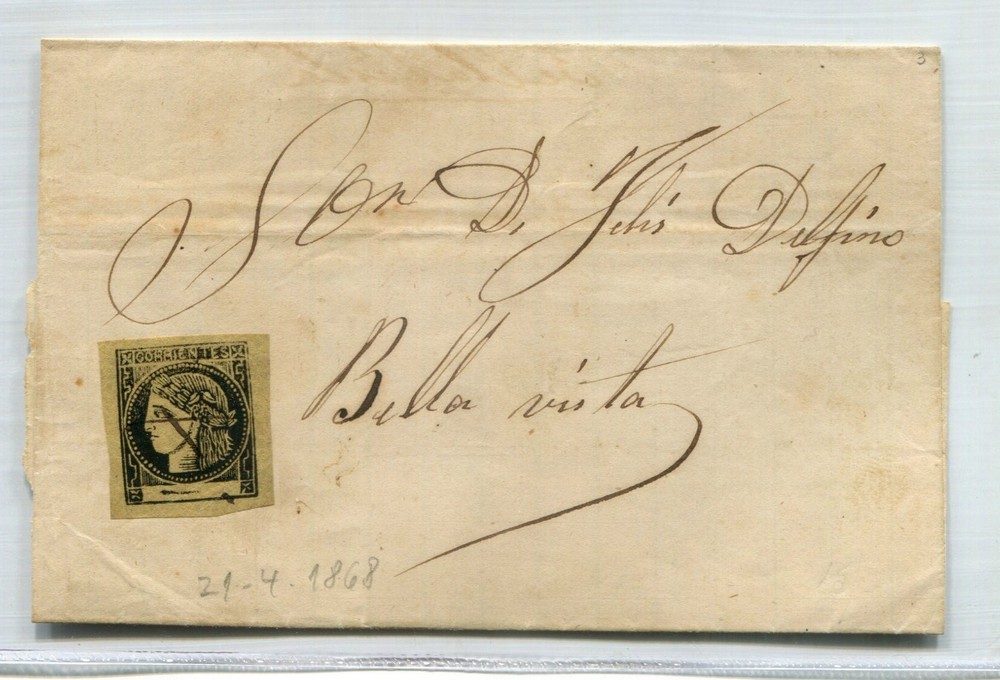 3
Sor Dn D. Felis Delfino
Bella vista
CORRIENTES
21-4-1868